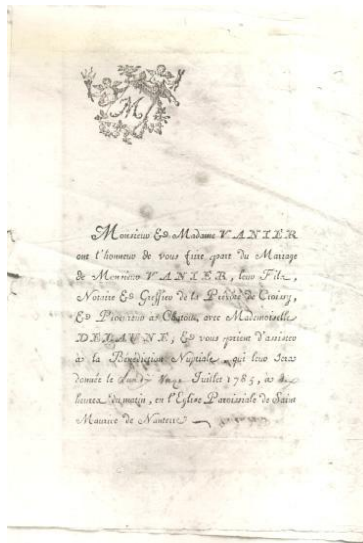 M
Monsieur & Madame VANIER
ont l'honneur de vous faire part du Mariage
de Monsieur VANIER, leur Fils,
Notaire & Greffier de la Prévôté de Croissy,
& Procureur à Chatou, avec Mademoiselle
DELAUNE, & vous prient d'assister
à la Bénédiction Nuptiale, qui leur sera
donnée le Lundy Juillet 1785, à
heures du matin, en l'Eglise Paroissiale de Saint
Maurice de Nanterre